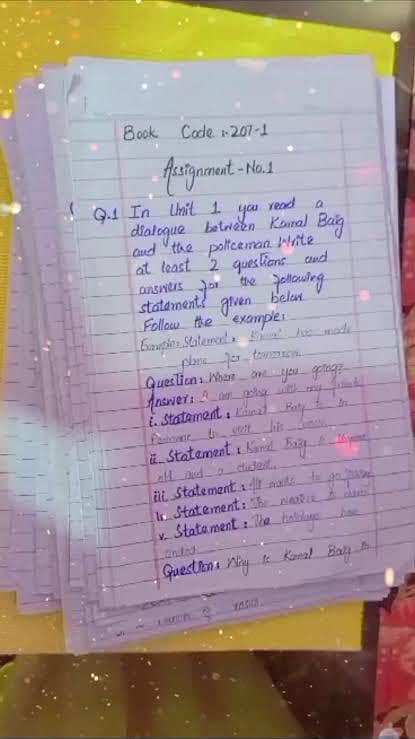 Book Code :- 207-1
Assignment - No.1
Q.1 In Unit 1 you read a
dialogue between Kamal Baig
and the policeman. Write
at least 2 questions and
answers for the following
statements given below.
Follow the example:
Example: Statement: Kamal has made
plans for tomorrow.
Question: Where are you going?
Answer: I am going with my
i. Statement: Kamal Baig is in
to visit his
ii. Statement: Kamal Baig is
old and a student.
iii. Statement: Ali wants to go
iv. Statement: The weather is
v. Statement: The holidays have
ended.
Question: Why is Kamal Baig in